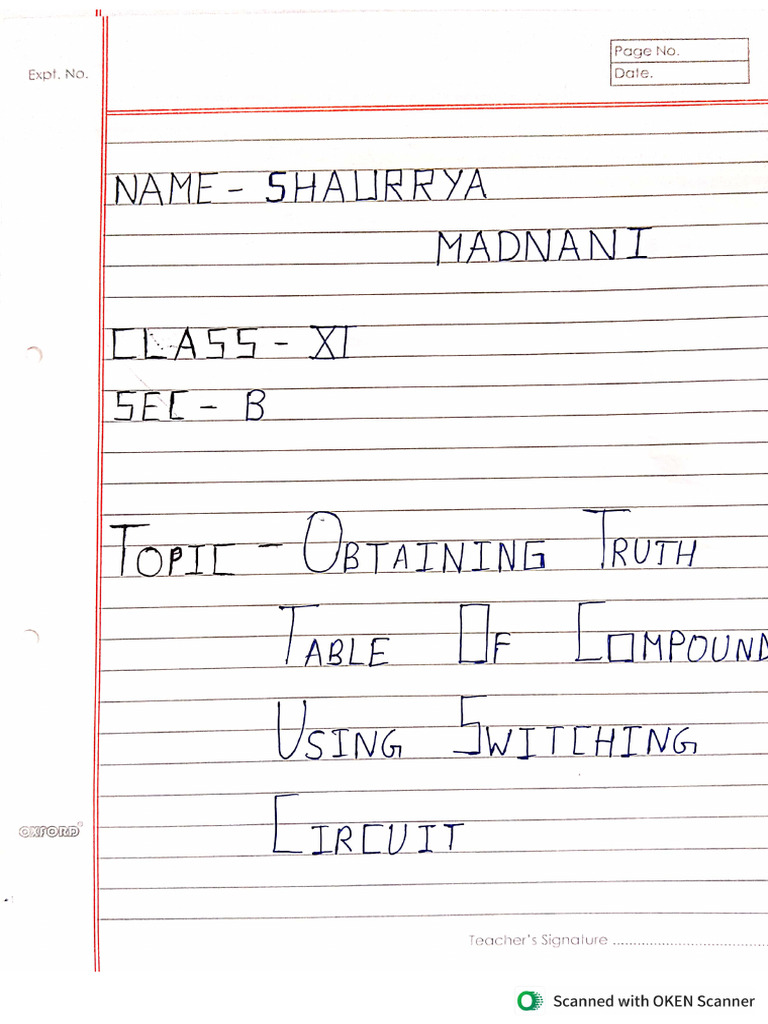 Page No.
Expt. No.
Date.
NAME - SHAURRYA
MADNANI
CLASS - XI
SEC - B
TOPIC - OBTAINING TRUTH
TABLE OF COMPOUND
USING SWITCHING
CIRCUIT
OXFORD
Teacher's Signature ..........................................
Scanned with OKEN Scanner